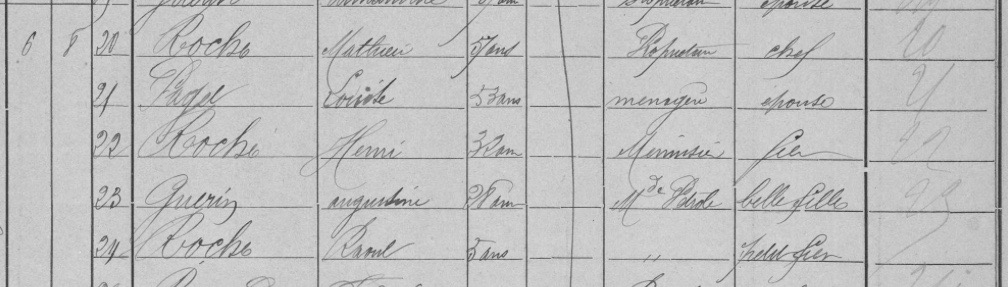 épouse
6 8 20 Roche Mathieu 57 ans Propriétaire chef 20
21 Pagel Louise 53 ans menagere epouse 21
22 Roche Henri 32 ans Menuisier fils 22
23 Guerin augustine 28 ans Mde belle fille 23
24 Roche Raoul 5 ans " petit fils